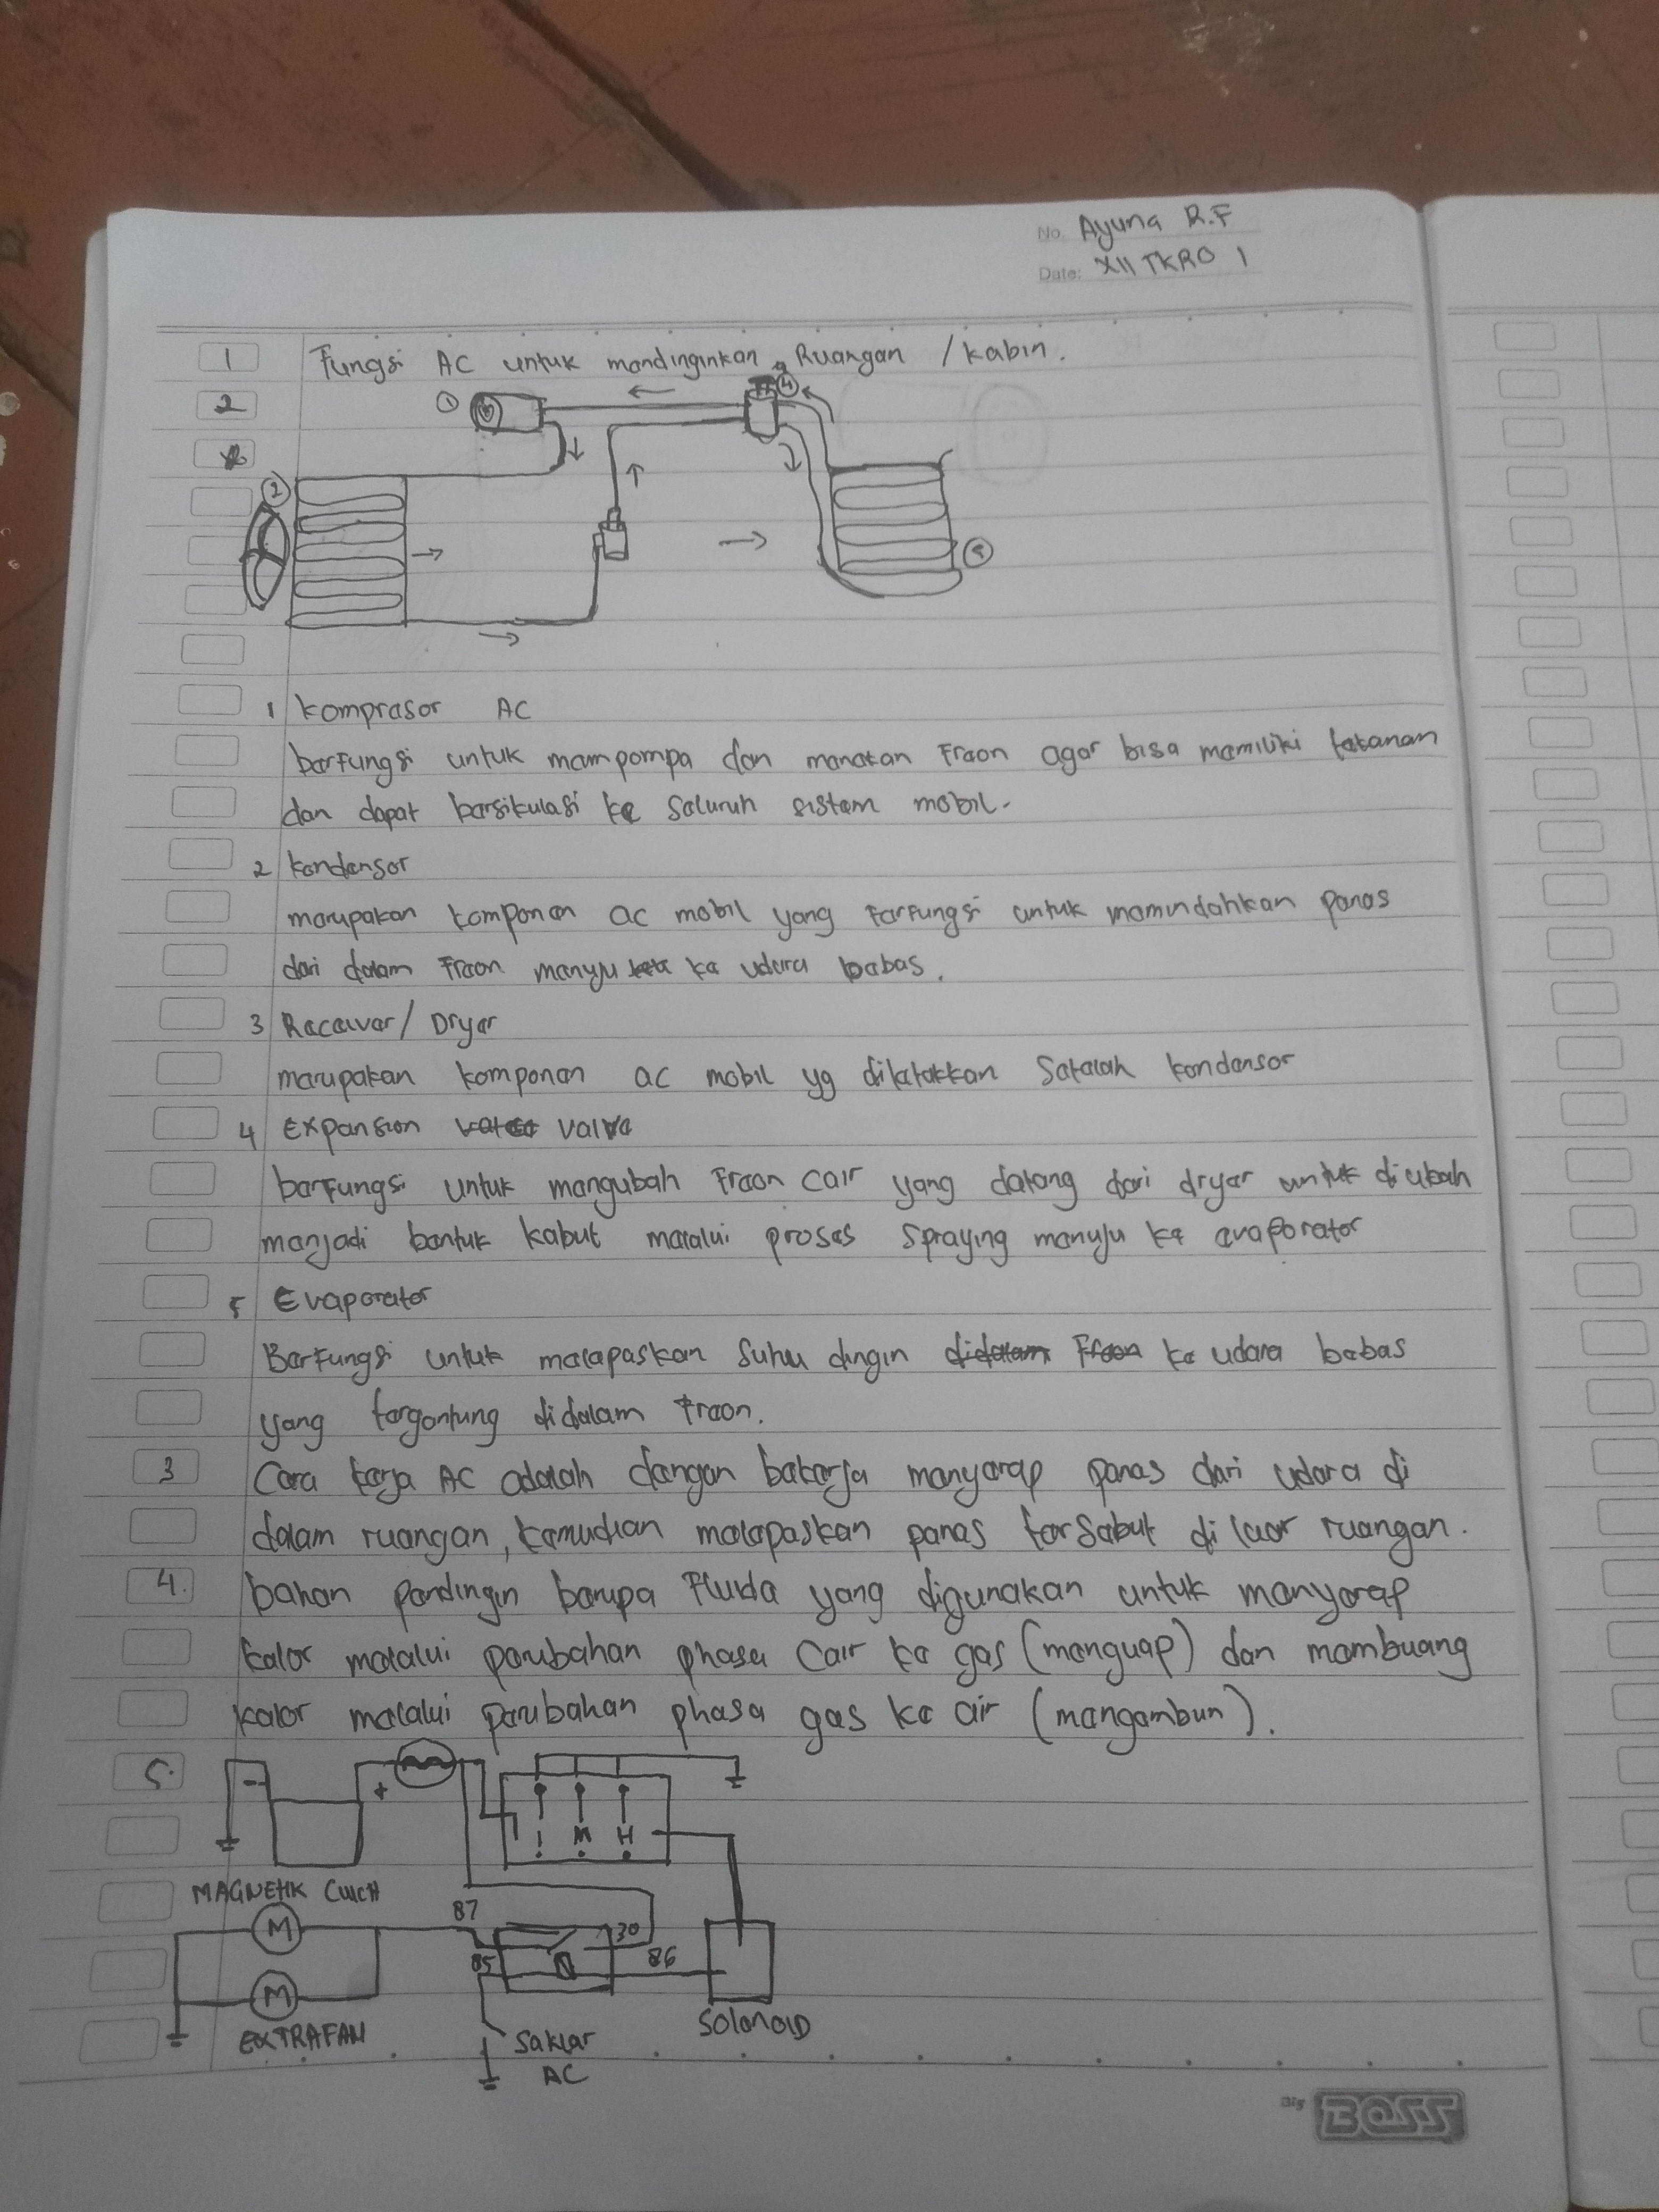 No. Ayuna R.F
Date: XII TKRO 1
1 Fungsi AC untuk mendinginkan Ruangan / kabin.
2
1
4
2
5
1 kompresor AC
berfungsi untuk mempompa dan menekan Freon agar bisa memiliki tekanan
dan dapat bersikulasi ke seluruh sistem mobil.
2 kondensor
merupakan komponen ac mobil yang Ferfungsi untuk memindahkan panas
dari dalam Freon menuju ke udara bebas.
3 Receiver / Dryer
merupakan komponen ac mobil yg diletakkan Setelah kondensor
4 Expansion valve
berfungsi untuk mengubah Freon cair yang datang dari dryer untuk diubah
menjadi bentuk kabut melalui proses Spraying menuju ke evaporator
5 Evaporator
Berfungsi untuk melepaskan Suhu dingin didalam Freon ke udara bebas
yang tergantung didalam Freon.
3 Cara kerja AC adalah dengan bekerja menyerap panas dari udara di
dalam ruangan, kemudian melepaskan panas tersebut di luar ruangan.
4. bahan pendingin berupa Fluida yang digunakan untuk menyerap
kalor melalui perubahan phasa Cair ke gas (menguap) dan membuang
kalor melalui perubahan phasa gas ke air (mengembun).
5.
- +
M H
MAGNETIK CLUCH
87
M
30
85
86
M
EXTRAFAN
Saklar
AC
SOLONOID
Big BOSS